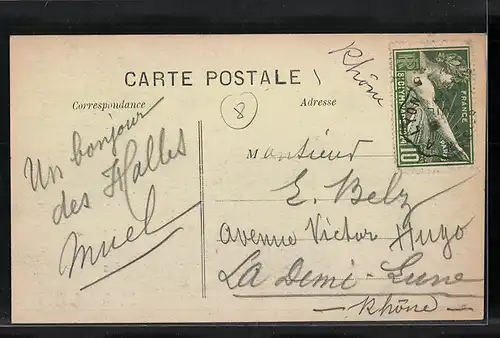 CARTE POSTALE
Correspondance
Adresse
8
Rhône
10
FRANCE
PARIS
Un bonjour
des Halles
Muel
Monsieur
E. Belz
Avenue Victor Hugo
La Demi-Lune
Rhône